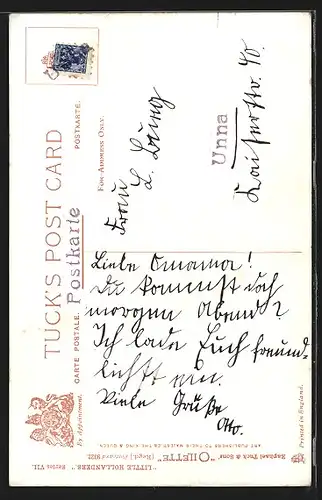 TUCK'S POST CARD
Postkarte
CARTE POSTALE.
POSTKARTE.
By Appointment.
FOR ADDRESS ONLY.
Frau
L.
Unna
Kaiserstr. 40
Liebe Omama!
Du kommst doch
morgen Abend?
Ich lade Euch freund-
lichst ein.
Viele Grüße
Otto.
Raphael Tuck & Sons' "OILETTE" [Regd.] Postcard 9122.
"LITTLE HOLLANDERS" Series VII.
ART PUBLISHERS TO THEIR MAJESTIES THE KING & QUEEN
Printed in England.